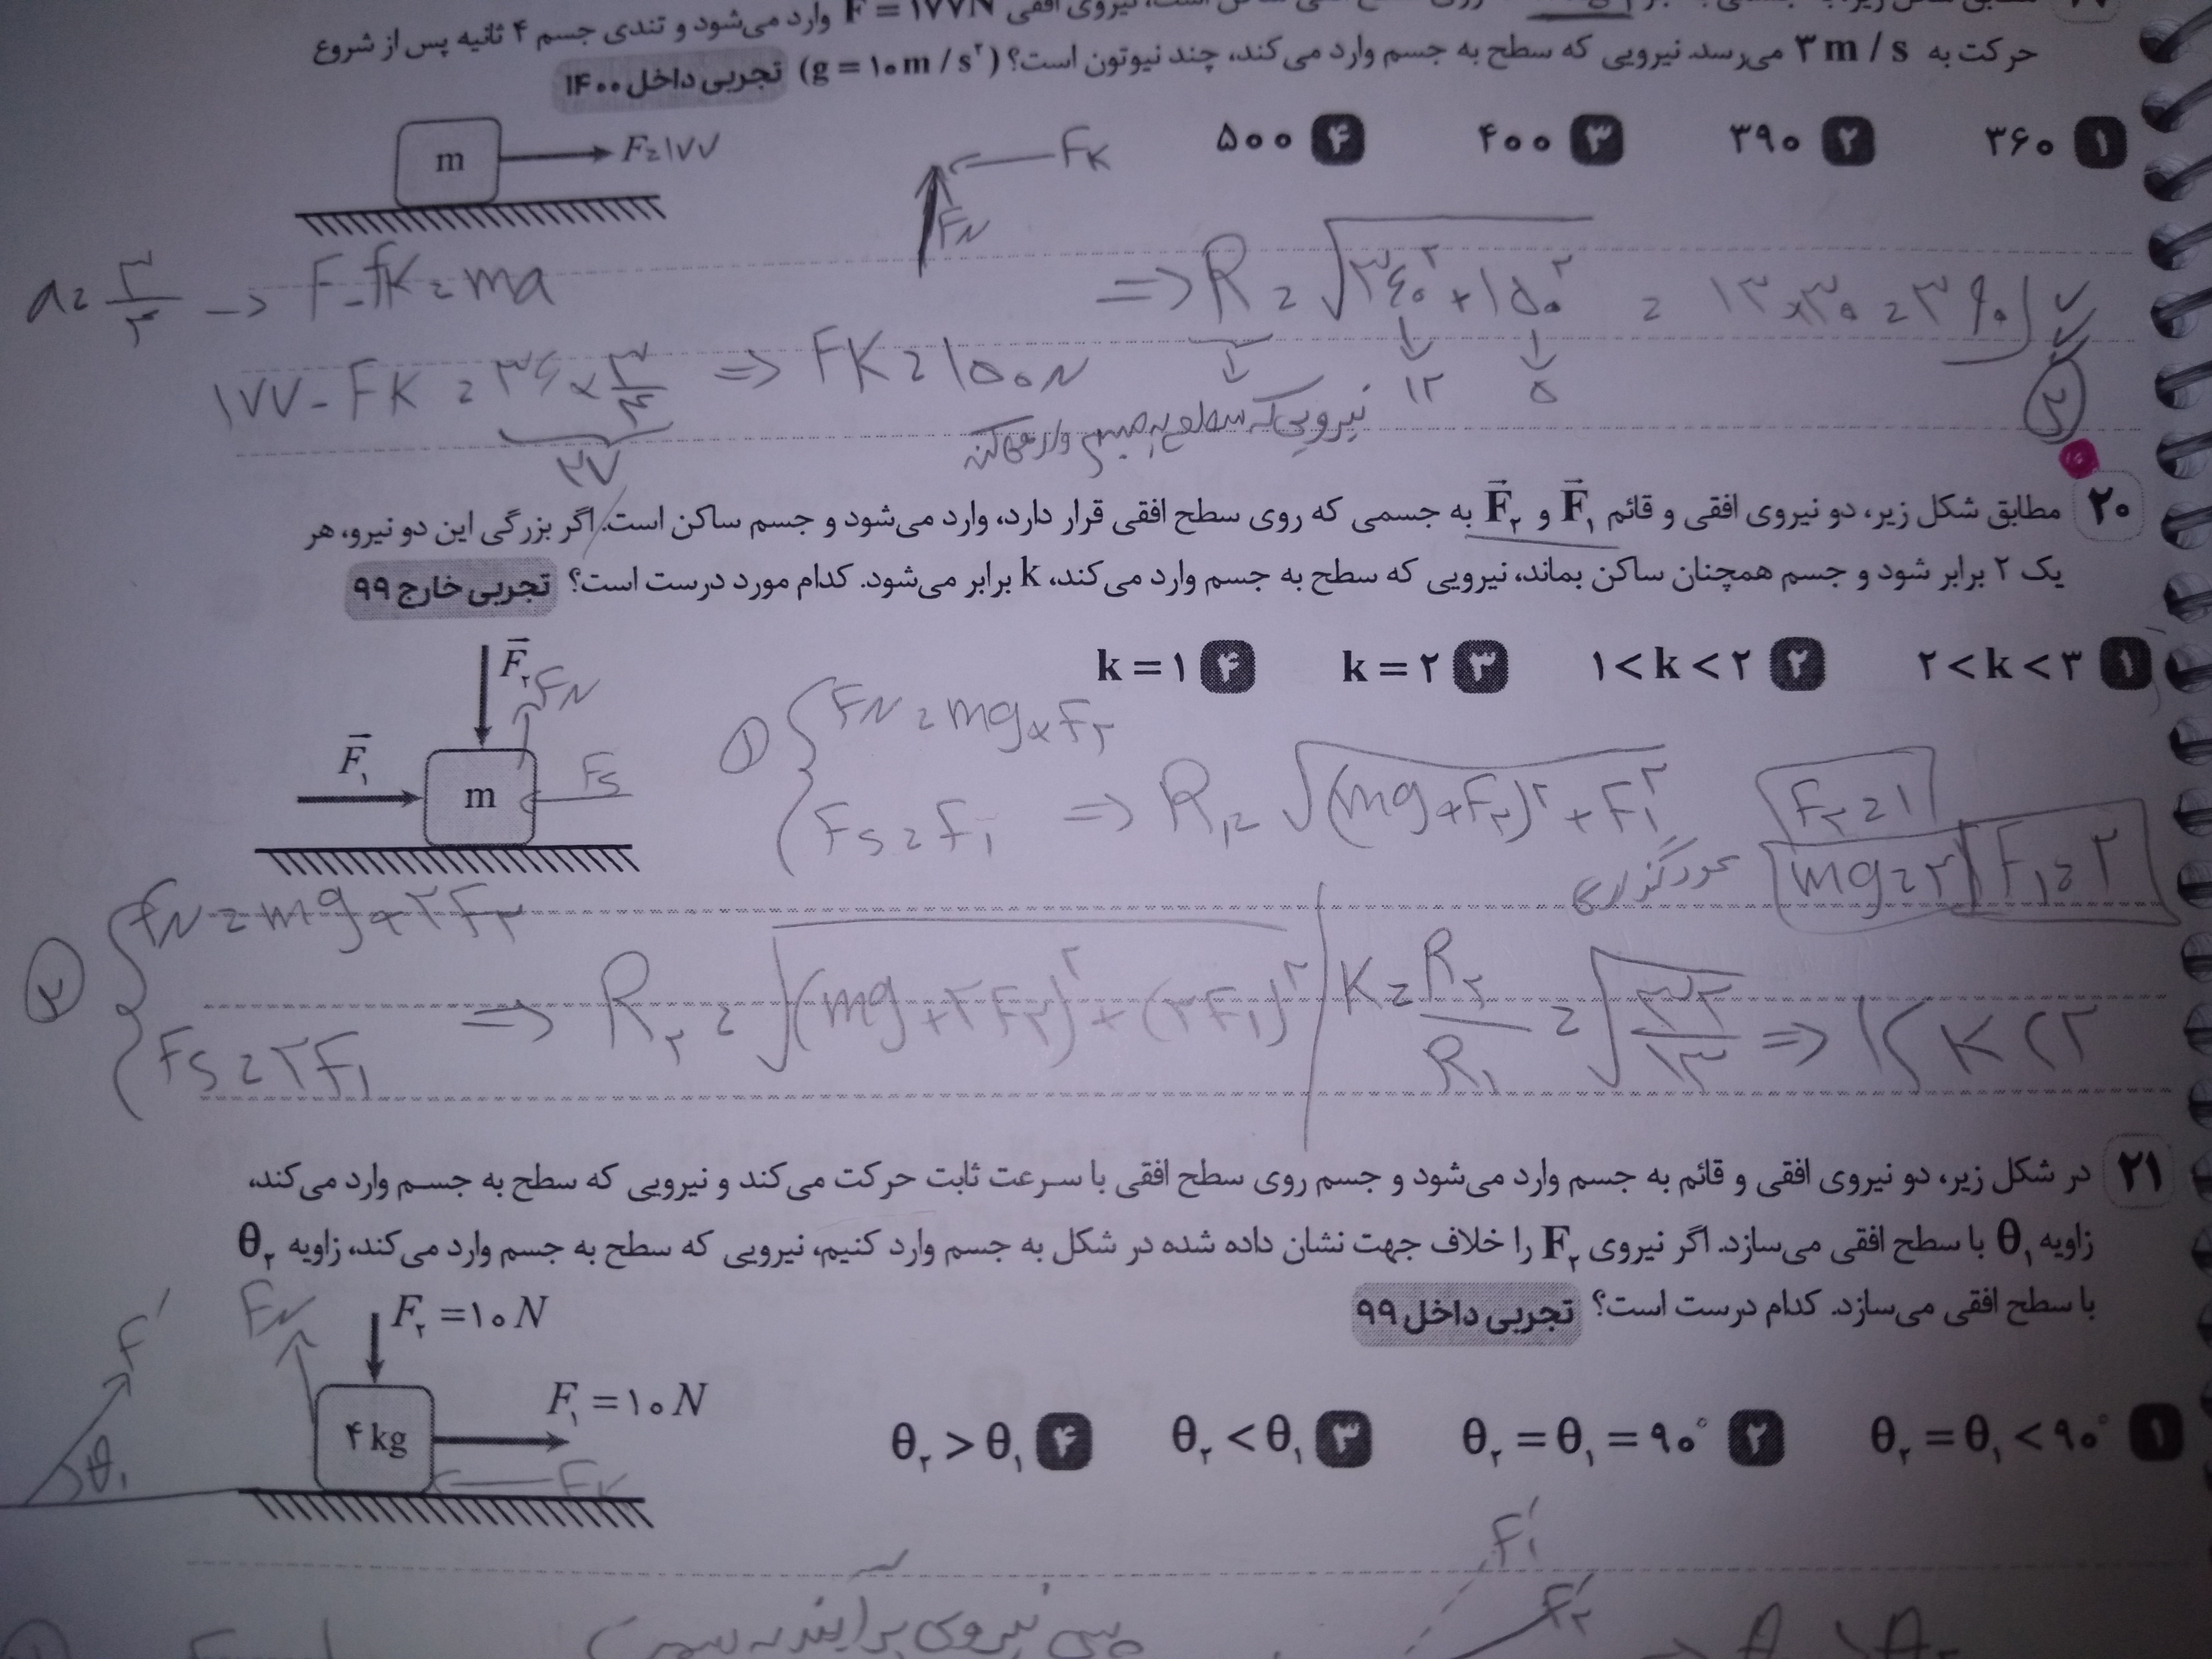 وارد می‌شود و تندی جسم ۴ ثانیه پس از شروع F = ۱۷۷N نیروی افقی
حرکت به ۳ m / s می‌رسد. نیرویی که سطح به جسم وارد می‌کند، چند نیوتون است؟ (g = ۱۰ m / s²) تجربی داخل ۱۴۰۰
۱ ۳۶۰ ۲ ۳۹۰ ۳ ۴۰۰ ۴ ۵۰۰
m F=۱۷۷
FK
FN
a = ۳/۴ → F - fK = ma
⇒ R = √۳۶۰² + ۱۵۰² = ۱۳×۳۰ = ۳۹۰
۱۷۷ - FK = ۳۶ × ۳/۴ ⇒ FK = ۱۵۰N
۱۲ ۵
۲۷
نیرویی که سطح به جسم وارد می‌کند
۲
۲۰ مطابق شکل زیر، دو نیروی افقی و قائم F⃗₁ و F⃗₂ به جسمی که روی سطح افقی قرار دارد، وارد می‌شود و جسم ساکن است. اگر بزرگی این دو نیرو، هر
یک ۲ برابر شود و جسم همچنان ساکن بماند، نیرویی که سطح به جسم وارد می‌کند، k برابر می‌شود. کدام مورد درست است؟ تجربی خارج ۹۹
۱ ۲ < k < ۳ ۲ ۱ < k < ۲ ۳ k = ۲ ۴ k = ۱
F⃗₂
FN
F⃗₁ m FS
① FN = mg + F۲
FS = F۱ ⇒ R۱ = √(mg+F۲)² + F۱²
F۲ = ۱
عددگذاری mg = ۲ F۱ = ۲
② FN = mg + ۲F۲
FS = ۲F۱ ⇒ R۲ = √(mg+۲F۲)² + (۲F۱)²
K = R۲/R۱ = √۳۲/۱۳ ⇒ ۱ < K < ۲
۲۱ در شکل زیر، دو نیروی افقی و قائم به جسم وارد می‌شود و جسم روی سطح افقی با سرعت ثابت حرکت می‌کند و نیرویی که سطح به جسم وارد می‌کند،
زاویه θ₁ با سطح افقی می‌سازد. اگر نیروی F₂ را خلاف جهت نشان داده شده در شکل به جسم وارد کنیم، نیرویی که سطح به جسم وارد می‌کند، زاویه θ₂
با سطح افقی می‌سازد. کدام درست است؟ تجربی داخل ۹۹
۱ θ₂ = θ₁ < ۹۰° ۲ θ₂ = θ₁ = ۹۰° ۳ θ₂ < θ₁ ۴ θ₂ > θ₁
F₂ = ۱۰ N
F₁ = ۱۰ N
۴ kg
FN
FK
F'
θ₁
F'₁
F'₂
نیروی برآیند به سمت